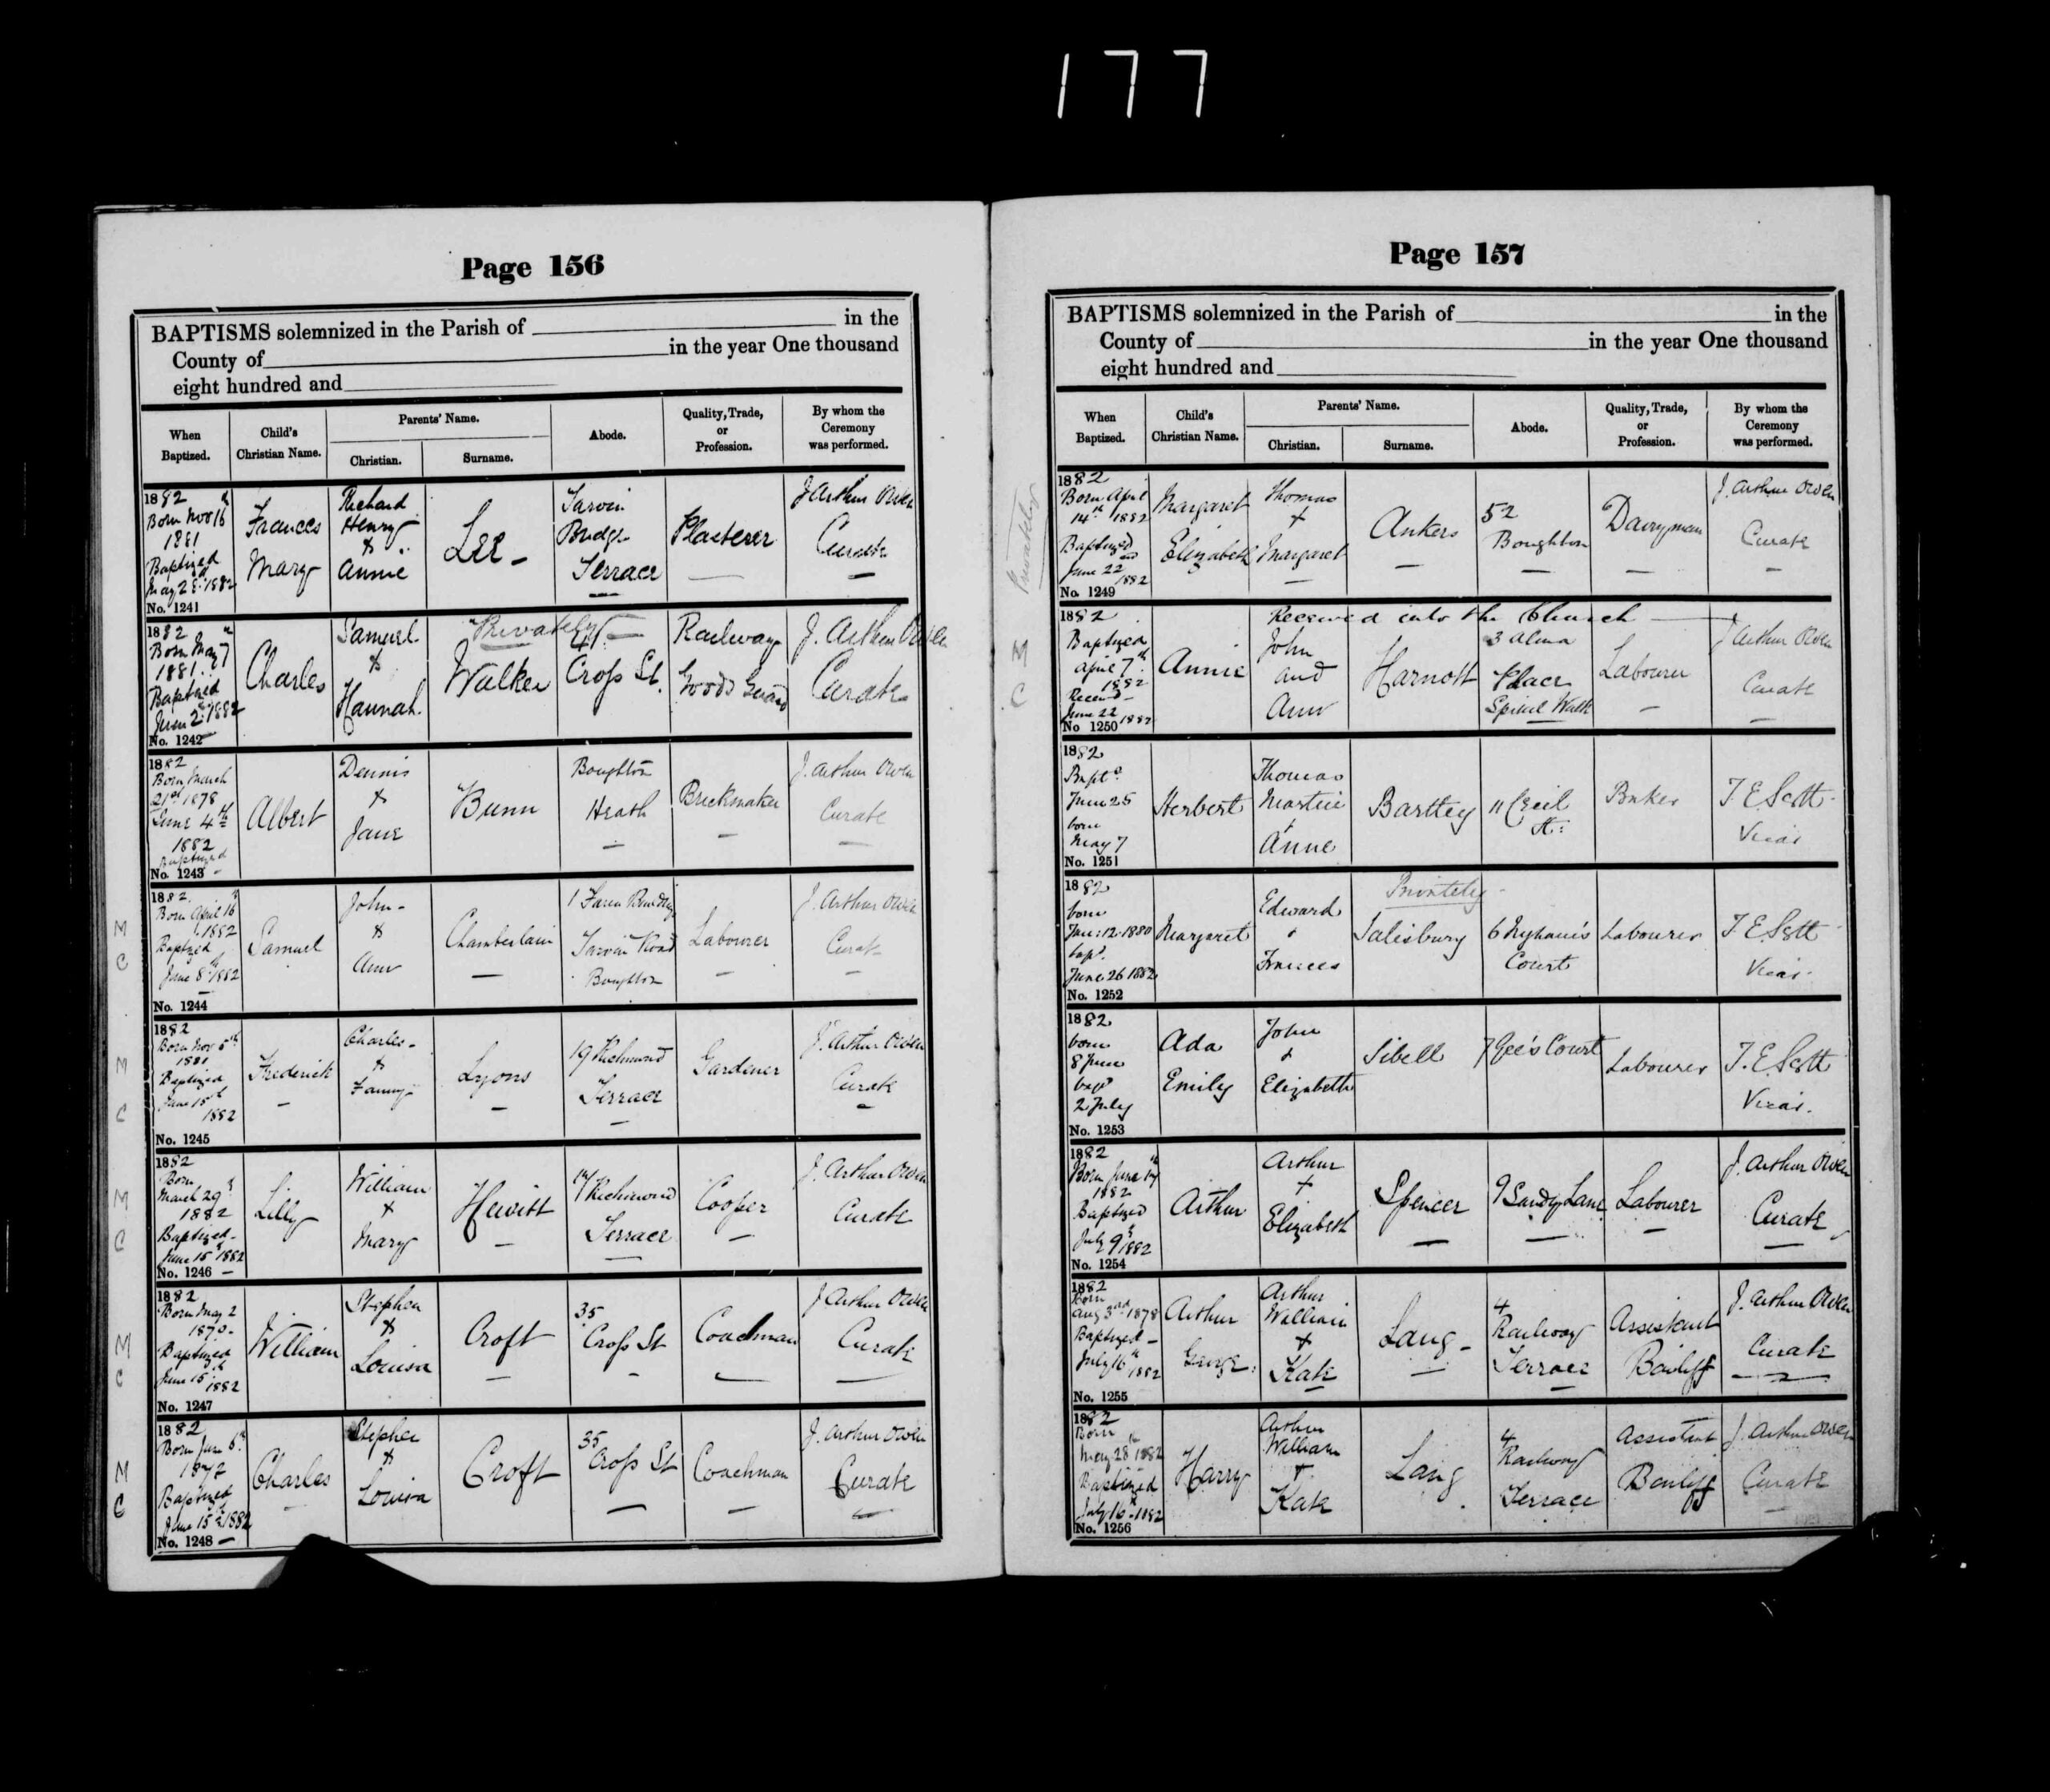 177
Page 156
BAPTISMS solemnized in the Parish of in the
County of in the year One thousand
eight hundred and
When Baptized. Child's Christian Name. Parents' Name. Christian. Surname. Abode. Quality, Trade, or Profession. By whom the Ceremony was performed.
1882
Born Nov 16th
1881
Baptized
May 28th 1882
No. 1241
Frances
Mary
Richard
Henry
&
Annie
Lee
Tarvin
Bridge
Terrace
Plasterer
J Arthur Owen
Curate
1882
Born May 7th
1881
Baptized
June 2nd 1882
No. 1242
Charles
Samuel
&
Hannah
Privately
Walker
41
Cross St.
Railway
Goods Guard
J. Arthur Owen
Curate
1882
Born March
21st 1878
June 4th
1882
Baptized
No. 1243
Albert
Dennis
&
Jane
Bunn
Boughton
Heath
Brickmaker
J. Arthur Owen
Curate
M
C
1882
Born April 16
1882
Baptized
June 8th 1882
No. 1244
Samuel
John
&
Ann
Chamberlain
1
Tarvin Road
Boughton
Labourer
J. Arthur Owen
Curate
M
C
1882
Born Nov 5th
1881
Baptized
June 15th
1882
No. 1245
Frederick
Charles
&
Fanny
Lyons
19 Richmond
Terrace
Gardener
J. Arthur Owen
Curate
M
C
1882
Born
March 29
1882
Baptized
June 15th 1882
No. 1246
Lilly
William
&
Mary
Hewitt
Richmond
Terrace
Cooper
J. Arthur Owen
Curate
M
C
1882
Born May 2
Baptized
June 15 1882
No. 1247
William
Stephen
&
Louisa
Croft
35
Cross St
Coachman
J Arthur Owen
Curate
M
C
1882
Born June 6th
1872
Baptized
June 15th 1882
No. 1248
Charles
Stephen
&
Louisa
Croft
35
Cross St
Coachman
J. Arthur Owen
Curate
Page 157
BAPTISMS solemnized in the Parish of in the
County of in the year One thousand
eight hundred and
When Baptized. Child's Christian Name. Parents' Name. Christian. Surname. Abode. Quality, Trade, or Profession. By whom the Ceremony was performed.
Privately
1882
Born April
14th 1882
Baptized
June 22
1882
No. 1249
Margaret
Elizabeth
Thomas
+
Margaret
Ankers
52
Boughton
Dairyman
J. Arthur Owen
Curate
M
C
1882
Baptized
April 7th
1882
Received
June 22 1882
No 1250
Received into the Church
Annie
John
and
Ann
Harnott
3 Alma
Place
Spital Walk
Labourer
J Arthur Owen
Curate
1882
Bapt d
June 25
born
May 7
No. 1251
Herbert
Thomas
Martin
&
Anne
Barttey
11 Cecil
St:
Baker
T. E Scott
Vicar
1882
born
Jan: 12. 1880
bapd.
June 26 1882
No. 1252
Margaret
Edward
&
Frances
Privately
Salisbury
6
Court
Labourer
T. E Scott
Vicar.
1882
born
8 June
bapd
2 July
No. 1253
Ada
Emily
John
&
Elizabeth
Sibell
7 Gee's Court
Labourer
T. E Scott
Vicar.
1882
Born June 14th
1882
Baptized
July 9th 1882
No. 1254
Arthur
Arthur
+
Elizabeth
Spencer
9 Sandy Lane
Labourer
J. Arthur Owen
Curate
1882
Born
Aug 3rd 1878
Baptized
July 16th 1882
No. 1255
Arthur
George
Arthur
William
+
Kate
Lang
4
Railway
Terrace
Assistant
Bailiff
J. Arthur Owen
Curate
1882
Born
May 28th 1882
Baptized
July 16th 1882
No. 1256
Harry
Arthur
William
+
Kate
Lang
4
Railway
Terrace
Assistant
Bailiff
J. Arthur Owen
Curate